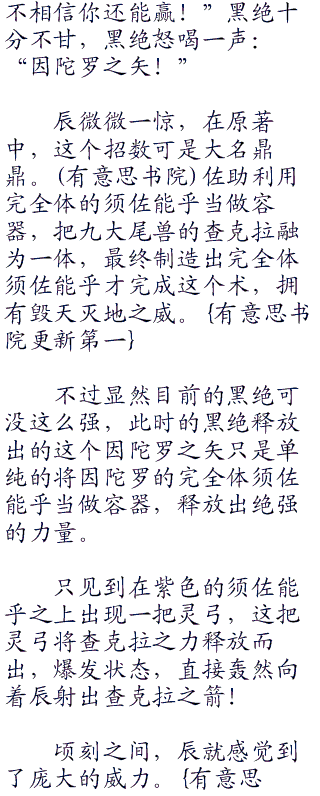 不相信你还能赢！”黑绝十
分不甘，黑绝怒喝一声：
“因陀罗之矢！”
辰微微一惊，在原著
中，这个招数可是大名鼎
鼎。(有意思书院)佐助利用
完全体的须佐能乎当做容
器，把九大尾兽的查克拉融
为一体，最终制造出完全体
须佐能乎才完成这个术，拥
有毁天灭地之威。{有意思书
院更新第一}
不过显然目前的黑绝可
没这么强，此时的黑绝释放
出的这个因陀罗之矢只是单
纯的将因陀罗的完全体须佐
能乎当做容器，释放出绝强
的力量。
只见到在紫色的须佐能
乎之上出现一把灵弓，这把
灵弓将查克拉之力释放而
出，爆发状态，直接轰然向
着辰射出查克拉之箭！
顷刻之间，辰就感觉到
了庞大的威力。{有意思